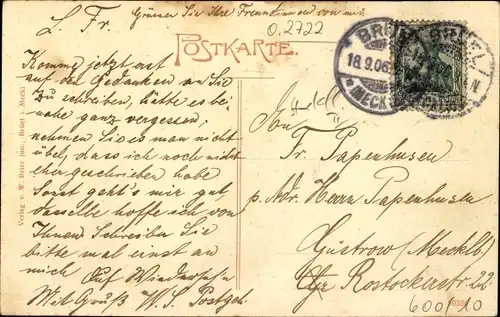 Grüssen Sie Ihre Freundinnen von mir
L. Fr.
0.2722
POSTKARTE.
BRÜEL
18.9.06
(MECK
Komme jetzt erst
auf den Gedanken an Sie
zu schreiben, hätte es bei-
nahe ganz vergessen,
nehmen Sie es man nicht
übel, dass ich noch nicht
eher geschrieben habe
Sonst geht's mir gut
dasselbe hoffe ich von
Ihnen Schreiben Sie
bitte mal einst an
mich Auf Wiedersehn
Mit Gruß W. S. Postgeh.
Verlag v. W. Beier jun., Brüel i. Meckl
Fr Papenhusen
p. Adr. Herrn Papenhusen
Güstrow (Mecklb)
Rostockerstr. 22
600/10